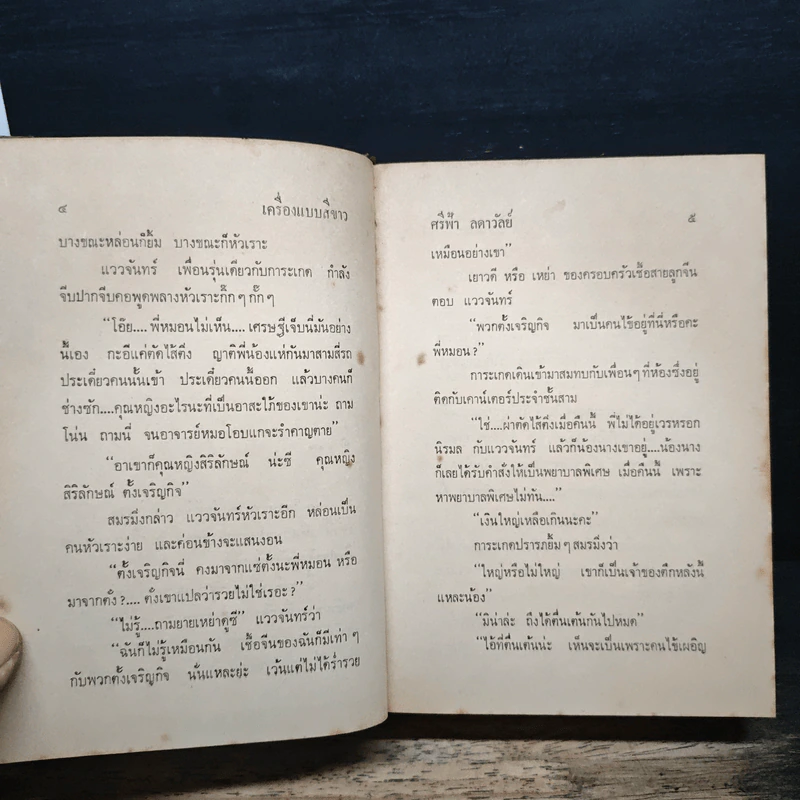 ๔ เครื่องแบบสีขาว
บางขณะหล่อนก็ยิ้ม บางขณะก็หัวเราะ
แววจันทร์ เพื่อนรุ่นเดียวกับการะเกด กำลัง
จีบปากจีบคอพูดพลางหัวเราะกิ๊ก ๆ กั๊ก ๆ
“โอ๊ย.... พี่หมอนไม่เห็น.... เศรษฐีเจ็บนี่มันอย่าง
นี้เอง กะอีแค่ตัดไส้ติ่ง ญาติพี่น้องแห่กันมาสามสี่รถ
ประเดี๋ยวคนนั้นเข้า ประเดี๋ยวคนนี้ออก แล้วบางคนก็
ช่างซัก....คุณหญิงอะไรนะที่เป็นอาสะใภ้ของเขาน่ะ ถาม
โน่น ถามนี่ จนอาจารย์หมอโอบแกจะรำคาญตาย”
“อาเขาก็คุณหญิงสิริลักษณ์ น่ะซี คุณหญิง
สิริลักษณ์ ตั้งเจริญกิจ”
สมรมิ่งกล่าว แววจันทร์หัวเราะอีก หล่อนเป็น
คนหัวเราะง่าย และค่อนข้างจะแสนงอน
“ตั้งเจริญกิจนี่ คงมาจากแซ่ตั้งนะพี่หมอน หรือ
มาจากตั่ง ?.... ตั่งเขาแปลว่ารวยไม่ใช่เรอะ ?”
“ไม่รู้....ถามยายเหย่าดูซี” แววจันทร์ว่า
“ฉันก็ไม่รู้เหมือนกัน เชื้อจีนของฉันก็มีเท่า ๆ
กับพวกตั้งเจริญกิจ นั่นแหละย่ะ เว้นแต่ไม่ได้ร่ำรวย
ศรีฟ้า ลดาวัลย์ ๕
เหมือนอย่างเขา”
เยาวดี หรือ เหย่า ของครอบครัวเชื้อสายลูกจีน
ตอบ แววจันทร์
“พวกตั้งเจริญกิจ มาเป็นคนไข้อยู่ที่นี่หรือคะ
พี่หมอน ?”
การะเกดเดินเข้ามาสมทบกับเพื่อน ๆ ที่ห้องซึ่งอยู่
ติดกับเคาน์เตอร์ประจำชั้นสาม
“ใช่....ผ่าตัดไส้ติ่งเมื่อคืนนี้ พี่ไม่ได้อยู่เวรหรอก
นิรมล กับแววจันทร์ แล้วก็น้องนางเขาอยู่....น้องนาง
ก็เลยได้รับคำสั่งให้เป็นพยาบาลพิเศษ เมื่อคืนนี้ เพราะ
หาพยาบาลพิเศษไม่ทัน....”
“เงินใหญ่เหลือเกินนะคะ”
การะเกดปรารภยิ้ม ๆ สมรมิ่งว่า
“ใหญ่หรือไม่ใหญ่ เขาก็เป็นเจ้าของตึกหลังนี้
แหละน้อง”
“มิน่าล่ะ ถึงได้ตื่นเต้นกันไปหมด”
“ไอ้ที่ตื่นเต้นน่ะ เห็นจะเป็นเพราะคนไข้เผอิญ